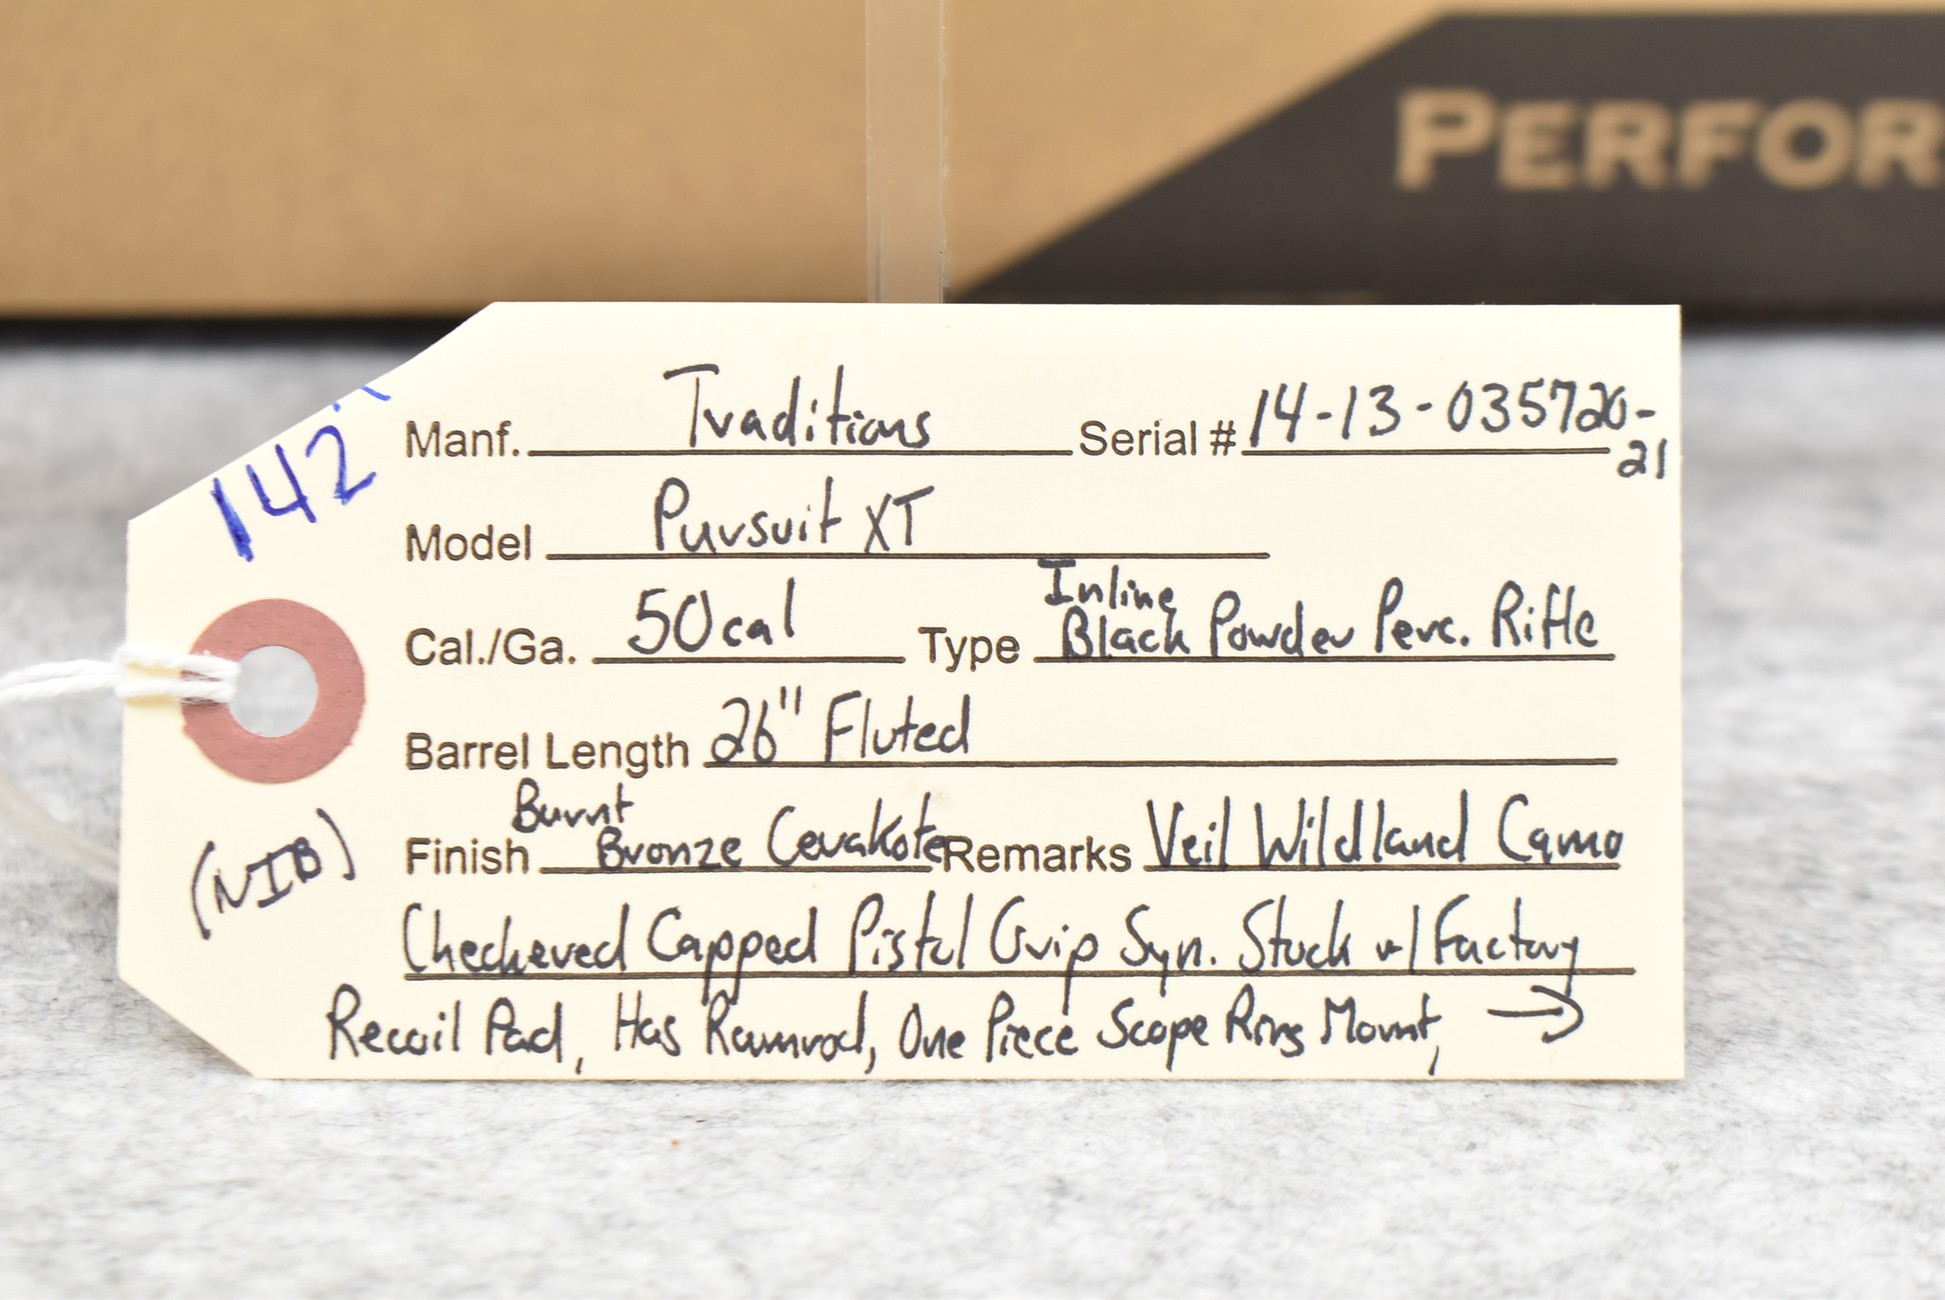 PERFOR
142
Manf. Traditions Serial # 14-13-035720-
21
Model Pursuit XT
Cal./Ga. 50cal Type Inline Black Powder Perc. Rifle
Barrel Length 26" Fluted
Finish Burnt Bronze Cerakote Remarks Veil Wildland Camo
(NIB)
Checkered Capped Pistol Grip Syn. Stock w/ Factory
Recoil Pad, Has Ramrod, One Piece Scope Ring Mount, →